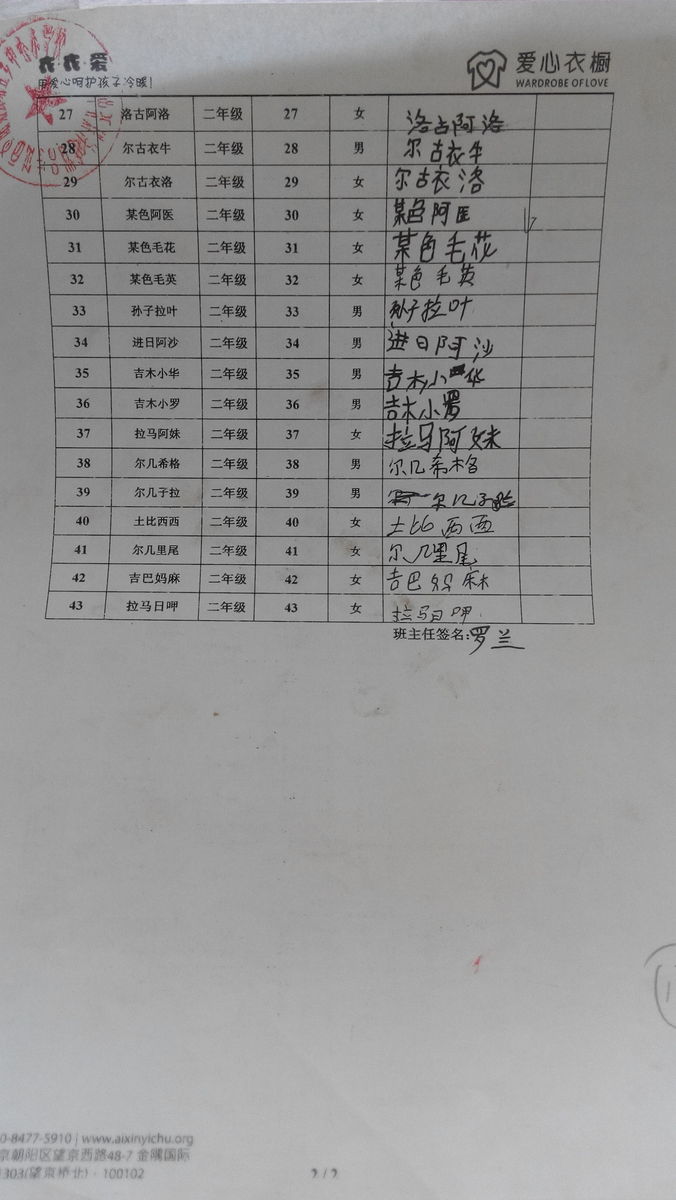 衣衣·爱
用爱心呵护孩子冷暖！
爱心衣橱
WARDROBE OF LOVE
27 洛古阿洛 二年级 27 女 洛古阿洛
28 尔古衣牛 二年级 28 男 尔古衣牛
29 尔古衣洛 二年级 29 女 尔古衣洛
30 某色阿医 二年级 30 女 某色阿医
31 某色毛花 二年级 31 女 某色毛花
32 某色毛英 二年级 32 女 某色毛英
33 孙子拉叶 二年级 33 男 孙子拉叶
34 进日阿沙 二年级 34 男 进日阿沙
35 吉木小华 二年级 35 男 吉木小华
36 吉木小罗 二年级 36 男 吉木小罗
37 拉马阿妹 二年级 37 女 拉马阿妹
38 尔几希格 二年级 38 男 尔几希格
39 尔几子拉 二年级 39 男 尔几子
40 土比西西 二年级 40 女 土比西西
41 尔几里尾 二年级 41 女 尔几里尾
42 吉巴妈麻 二年级 42 女 吉巴妈麻
43 拉马日呷 二年级 43 女 拉马日呷
班主任签名:罗兰
0-8477-5910 | www.aixinyichu.org
京朝阳区望京西路48-7 金隅国际
1303(望京桥北) · 100102
2 / 2